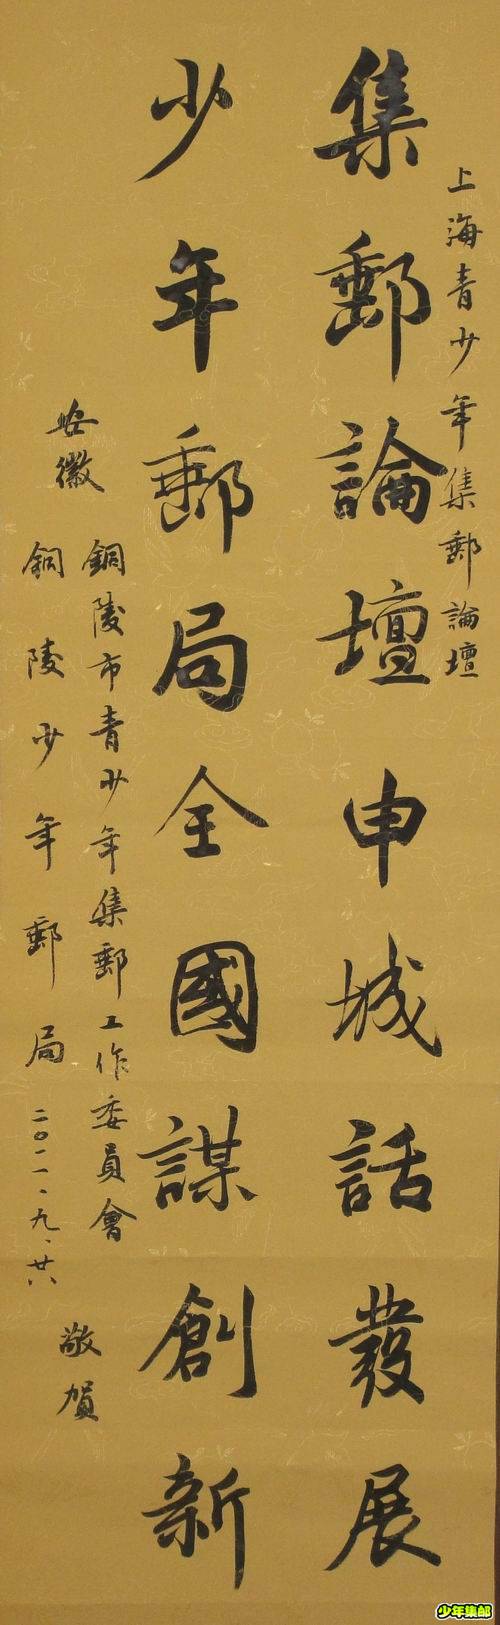 上海青少年集郵論壇
集郵論壇申城話發展
少年郵局全國謀創新
安徽
銅陵市青少年集郵工作委員會
銅陵少年郵局
二〇一一、九、廿八
敬賀
少年集邮